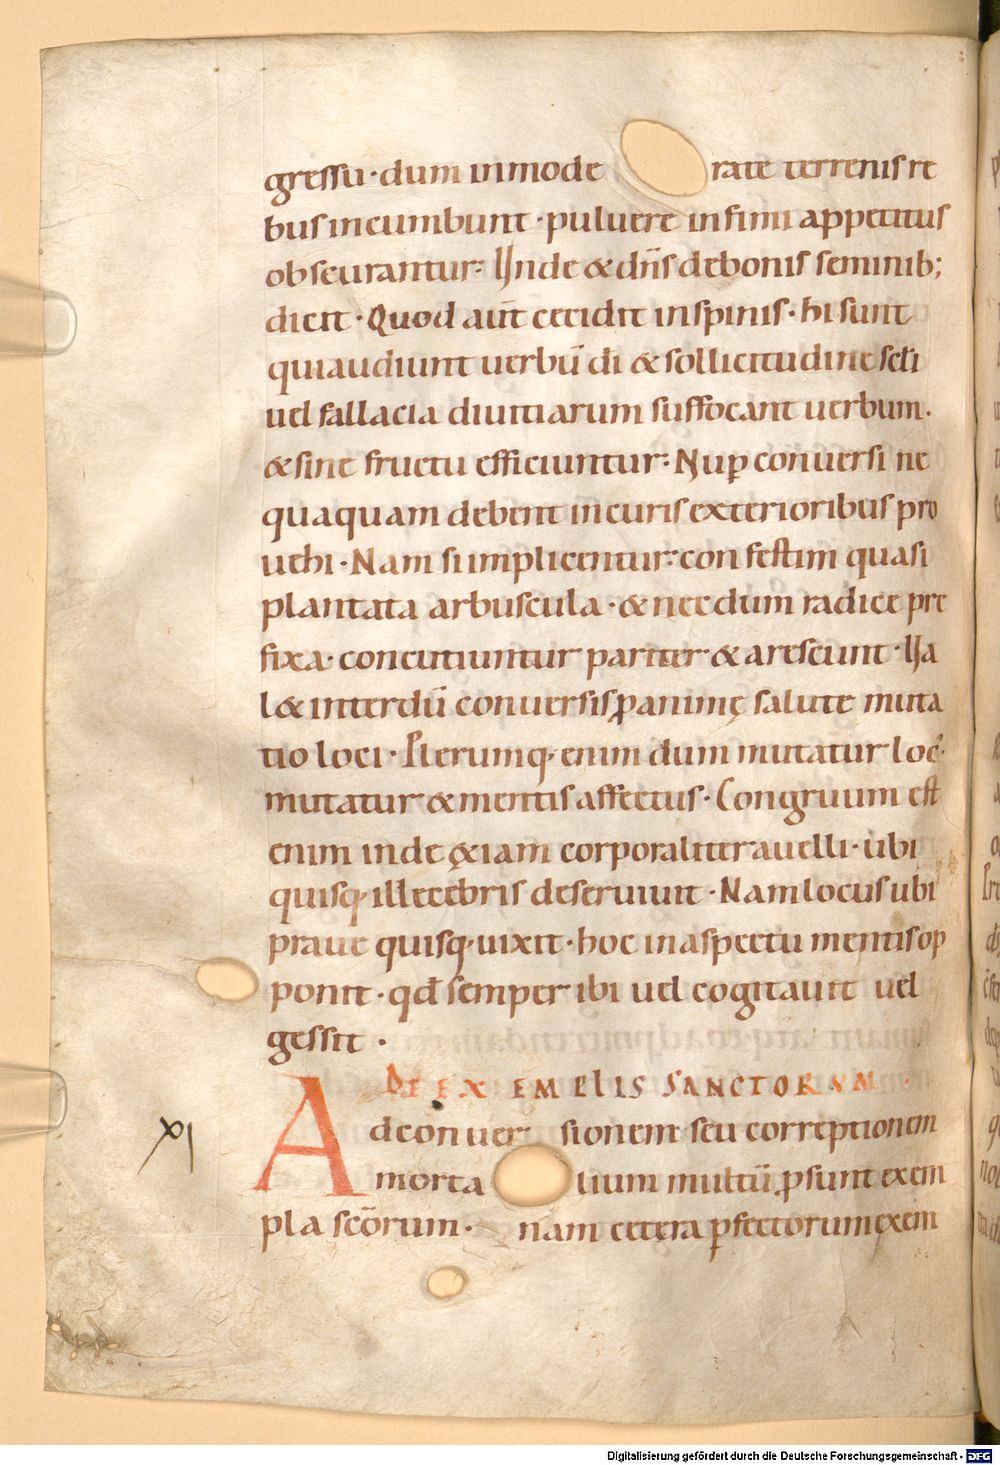 gressu · dum inmode rate terrenis re
bus incumbunt · puluere infimi appetitus
obscurantur: Unde & dn̄s de bonis seminib;
dicit · Quod aūt cecidit in spinis · hi sunt
qui audiunt uerbū dī & sollicitudine sc̄li
uel fallacia diuitiarum suffocant uerbum ·
& sine fructu efficiuntur: Nup̄ conuersi ne
quaquam debent in curis exterioribus pro
uehi · Nam si implicentur: confestim quasi
plantata arbuscula · & necdum radice pre
fixa · concutiuntur pariter & arescunt · Ua
l& interdū conuersis ꝓ animę salute muta
tio loci · Plerumq· enim dum mutatur loc᾿·
mutatur & mentis affectus · Congruum est
enim inde &iam corporaliter auelli · ubi
quisq· illecebris deseruiuit · Nam locus ubi
praue quisq· uixit · hoc in aspectu mentis op
ponit · qd̄ semper ibi uel cogitauit uel
gessit ·
DE EXEMPLIS SANCTORVM ·
XI Ad conuer sionem seu correptionem
morta lium multū ꝓsunt exem
pla sc̄orum · nam cetera ꝑfectorum exem
Digitalisierung gefördert durch die Deutsche Forschungsgemeinschaft - DFG